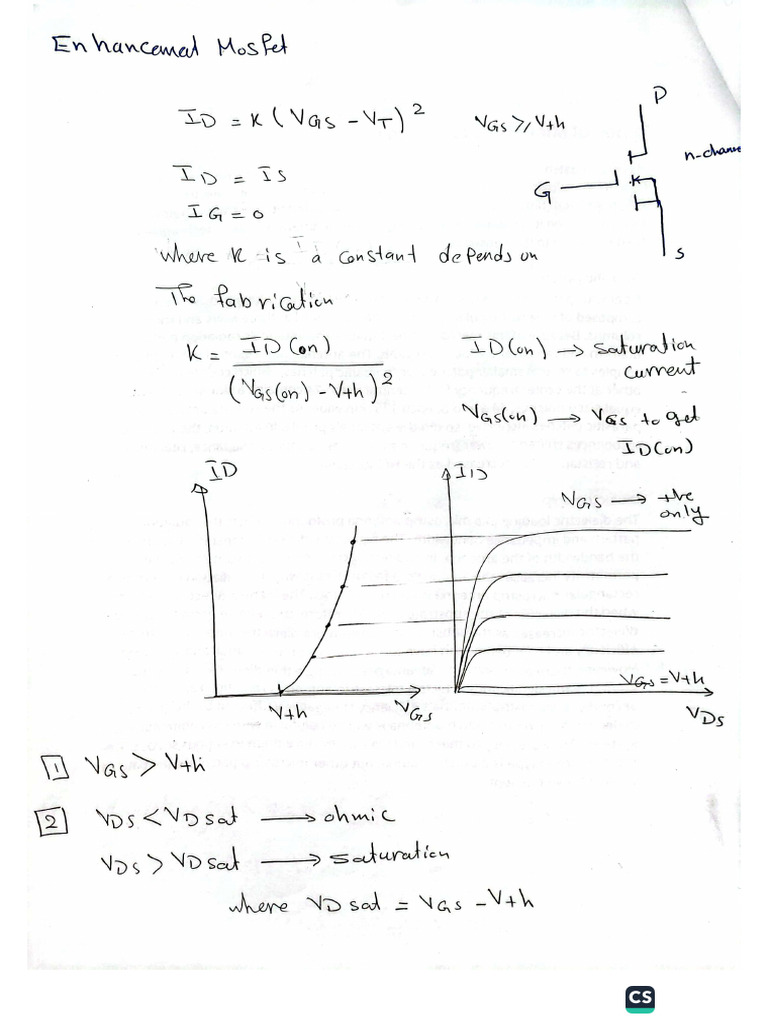 Enhancemal Mosfet
ID = K (VGS - VT)²   VGS ≥ Vth
D
n-channe
ID = IS
G
IG = 0
S
where K is a constant depends on
The fabrication
K = ID(on) / (VGS(on) - Vth)²
ID(on) → saturation
current
VGS(on) → VGS to get
ID(on)
ID
ID
VGS → +ve
only
VGS = Vth
Vth
VGS
VDS
1 VGS > Vth
2 VDS < VDsat → ohmic
VDS > VDsat → saturation
where VDsat = VGS - Vth
CS